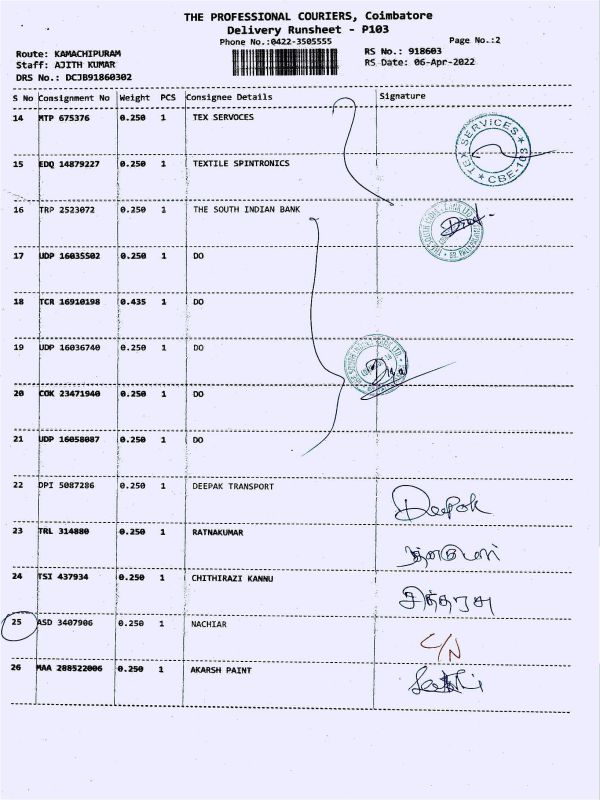 THE PROFESSIONAL COURIERS, Coimbatore
Delivery Runsheet - P103
Phone No.:0422-3505555
Page No.:2
Route: KAMACHIPURAM
RS No.: 918603
Staff: AJITH KUMAR
RS Date: 06-Apr-2022
DRS No.: DCJB91860302
S No Consignment No Weight PCS Consignee Details Signature
14 MTP 675376 0.250 1 TEX SERVOCES
TEX SERVICES ★ CBE-103 ★
15 EDQ 14879227 0.250 1 TEXTILE SPINTRONICS
16 TRP 2523072 0.250 1 THE SOUTH INDIAN BANK
17 UDP 16035502 0.250 1 DO
18 TCR 16910198 0.435 1 DO
19 UDP 16036740 0.250 1 DO
20 COK 23471940 0.250 1 DO
21 UDP 16058087 0.250 1 DO
22 DPI 5087286 0.250 1 DEEPAK TRANSPORT Deepak
23 TRL 314880 0.250 1 RATNAKUMAR
24 TSI 437934 0.250 1 CHITHIRAZI KANNU
25 ASD 3407906 0.250 1 NACHIAR C/N
26 MAA 288522006 0.250 1 AKARSH PAINT